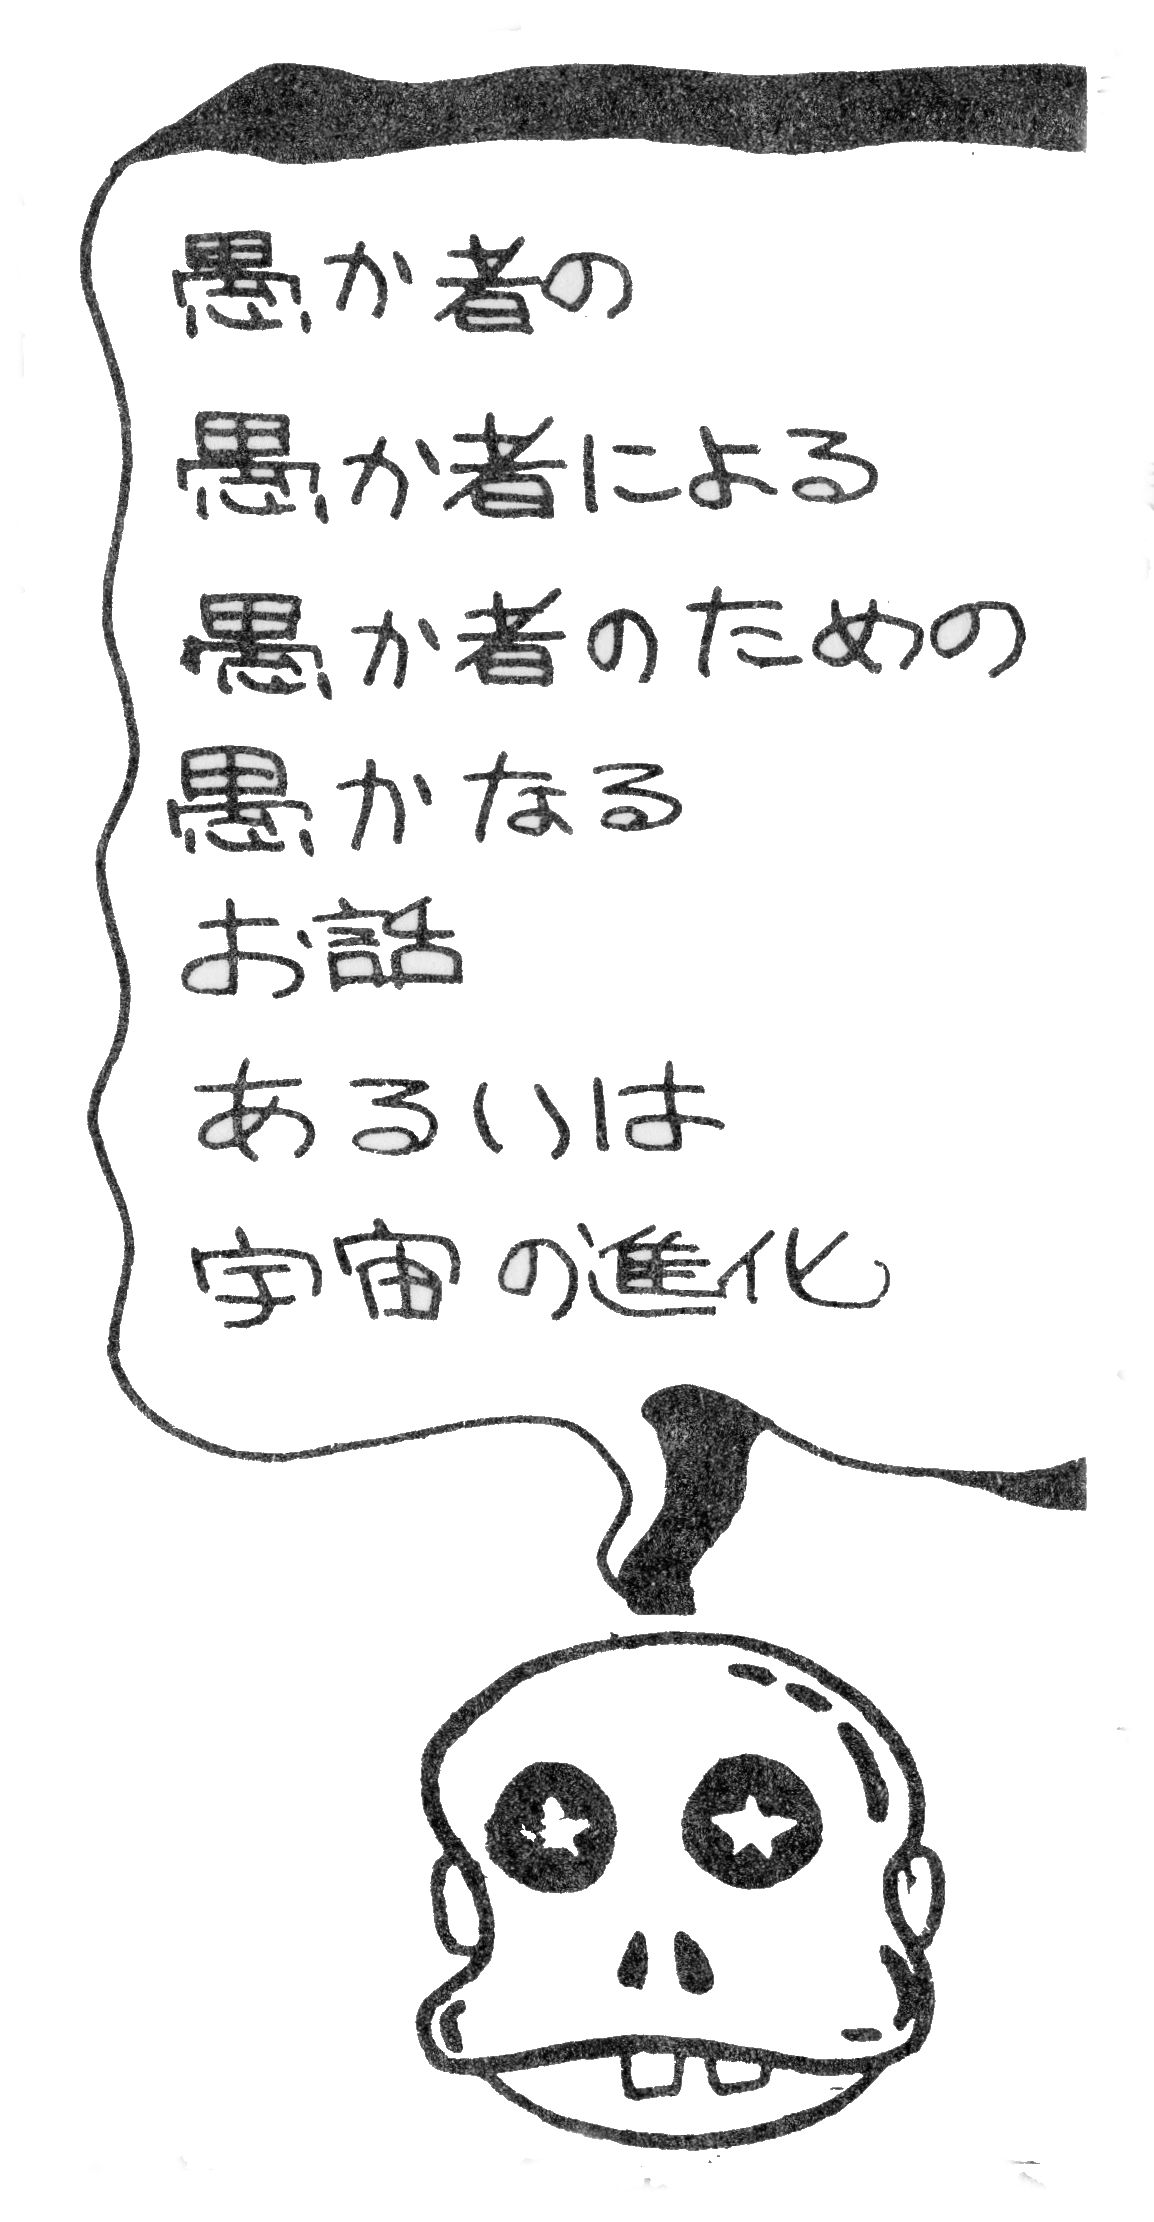 愚か者の
愚か者による
愚か者のための
愚かなる
お話
あるいは
宇宙の進化